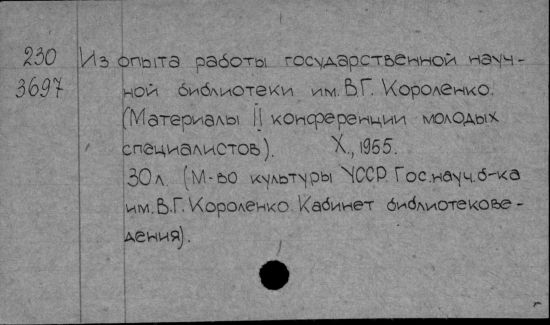 230 Из опыта работы государственной науч-
3697 ной библиотеки им. В.Г. Короленко.
(Материалы II конференции молодых
специалистов). Х., 1955.
30л. (М-во культуры УССР. Гос. науч. б-ка
им. В.Г. Короленко. Кабинет библиотекове-
дения).